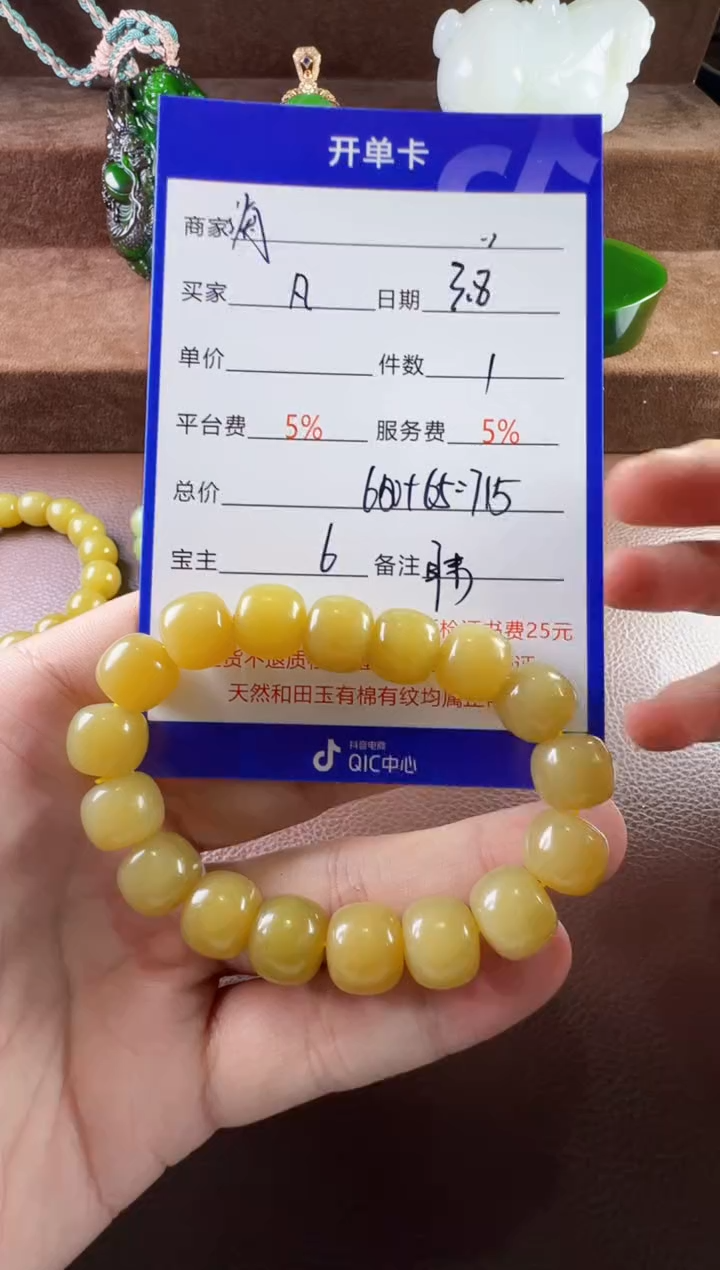 开单卡
商家 海
买家 A 日期 3.8
单价 件数 1
平台费 5% 服务费 5%
总价 650+65=715
宝主 6 备注
检证书费25元
货不退质
天然和田玉有棉有纹均属正
抖音电商
QIC中心